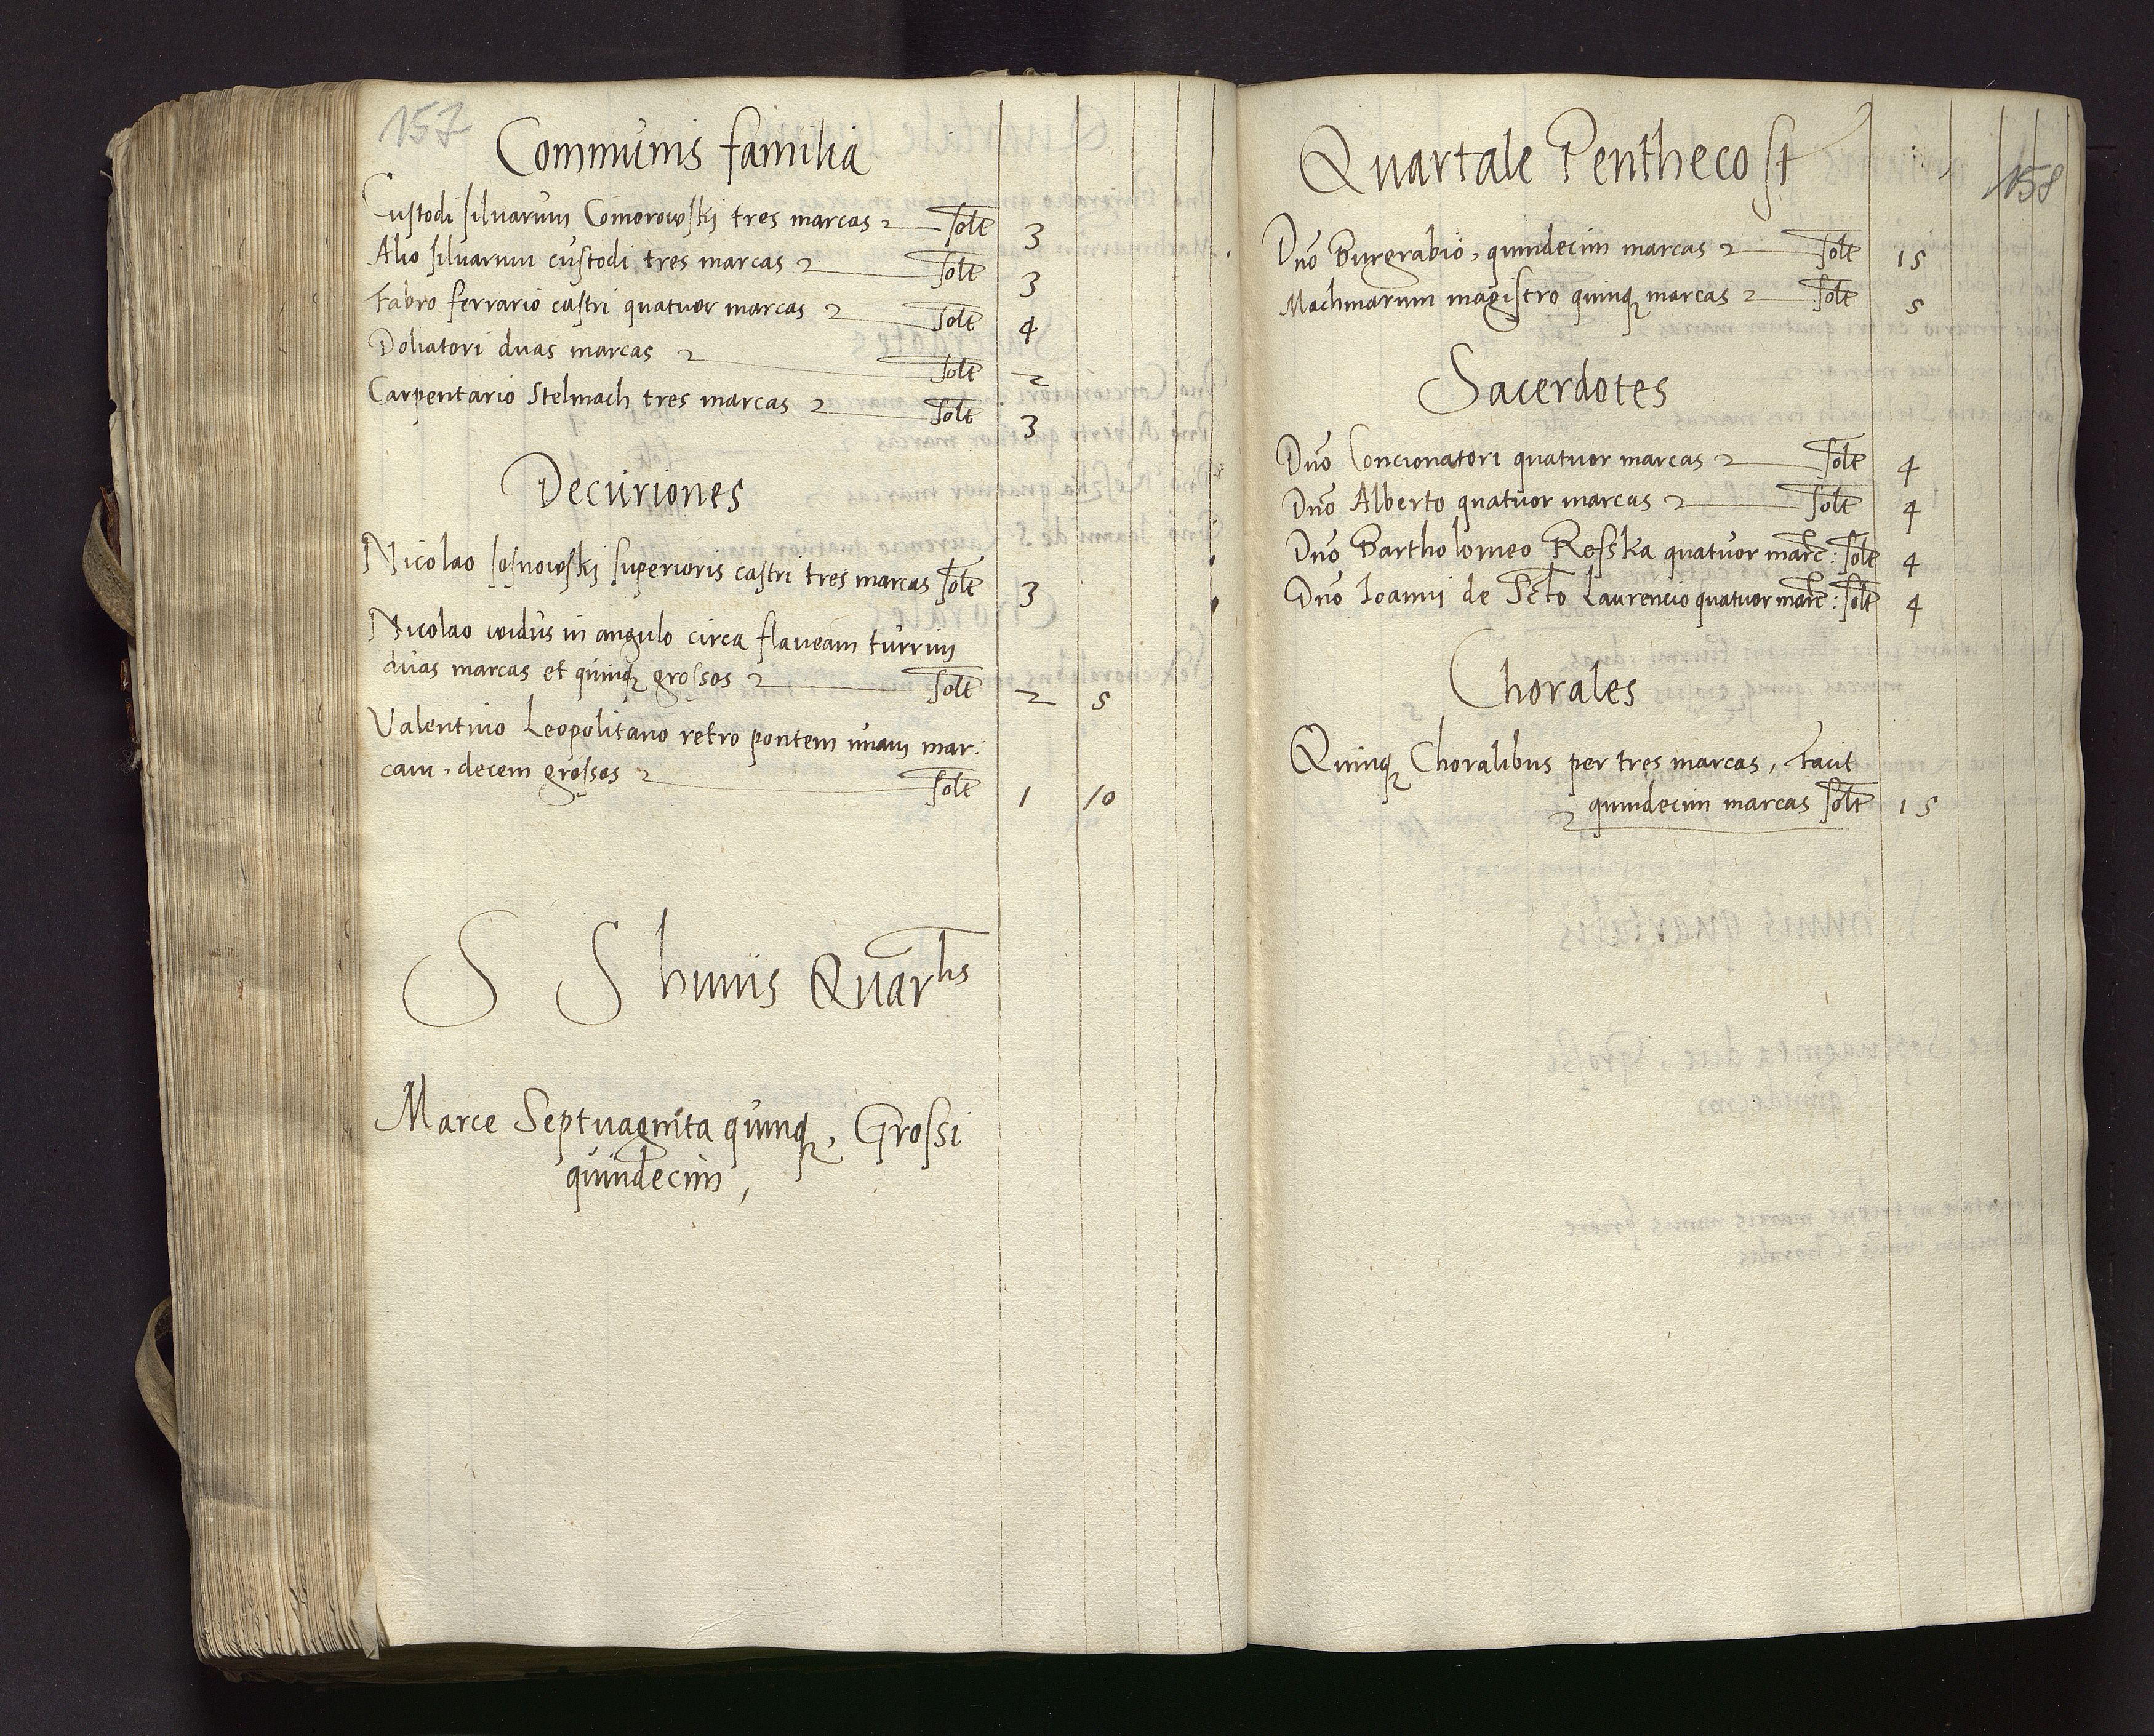 157
Communis familia
Custodi silvarum Comorowskj tres marcas solt 3
Alio silvarum custodi tres marcas solt 3
Fabro ferrario castri quatuor marcas solt 4
Doliatori duas marcas solt 2
Carpentario Stelmach tres marcas solt 3
Decuriones
Nicolao Sosnowskj superioris castri tres marcas solt 3
Nicolao in angulo circa flaveam turrim
duas marcas et quinq grossos solt 2 5
Valentino Leopolitano retro pontem unam mar:
cam, decem grossos solt 1 10
S S huius Quartlis
Marce Septuaginta quinq, Grossi
quindecim,
158
Quartale Penthecost
Dno Burgrabio, quindecim marcas solt 15
Machinarum magistro quinq marcas solt 5
Sacerdotes
Dno Concionatori quatuor marcas solt 4
Dno Alberto quatuor marcas solt 4
Dno Bartholomeo Resska quatuor marc: solt 4
Dno Ioanni de Scto Laurencio quatuor marc: solt 4
Chorales
Quinq Choralibus per tres marcas, facit
quindecim marcas solt 15